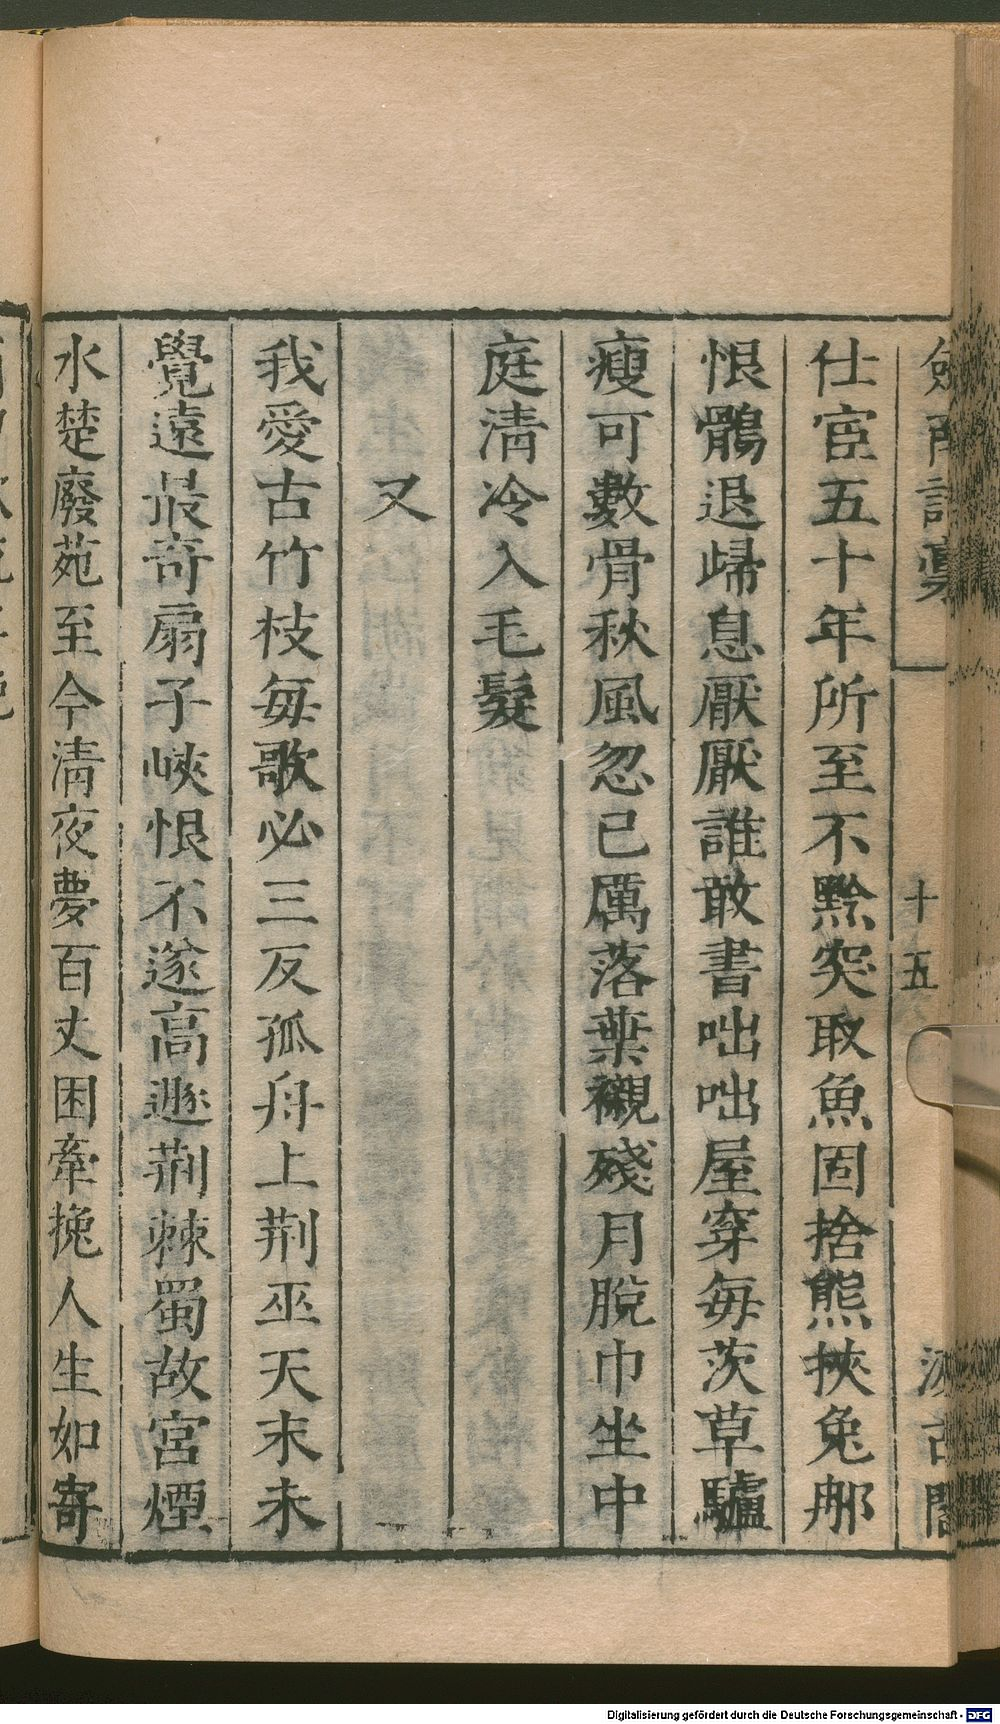 劍南詩稾
十五
汲古閣
仕宦五十年所至不黔突取魚固捨熊挾兔那
恨鶻退歸息厭厭誰敢書咄咄屋穿每茨草驢
瘦可數骨秋風忽已厲落葉襯殘月脫巾坐中
庭淸冷入毛髮
又
我愛古竹枝每歌必三反孤舟上荆巫天末未
覺遠最奇扇子峽恨不遂高遯荆棘蜀故宮煙
水楚廢苑至今淸夜夢百丈困牽挽人生如寄
Digitalisierung gefördert durch die Deutsche Forschungsgemeinschaft - DFG